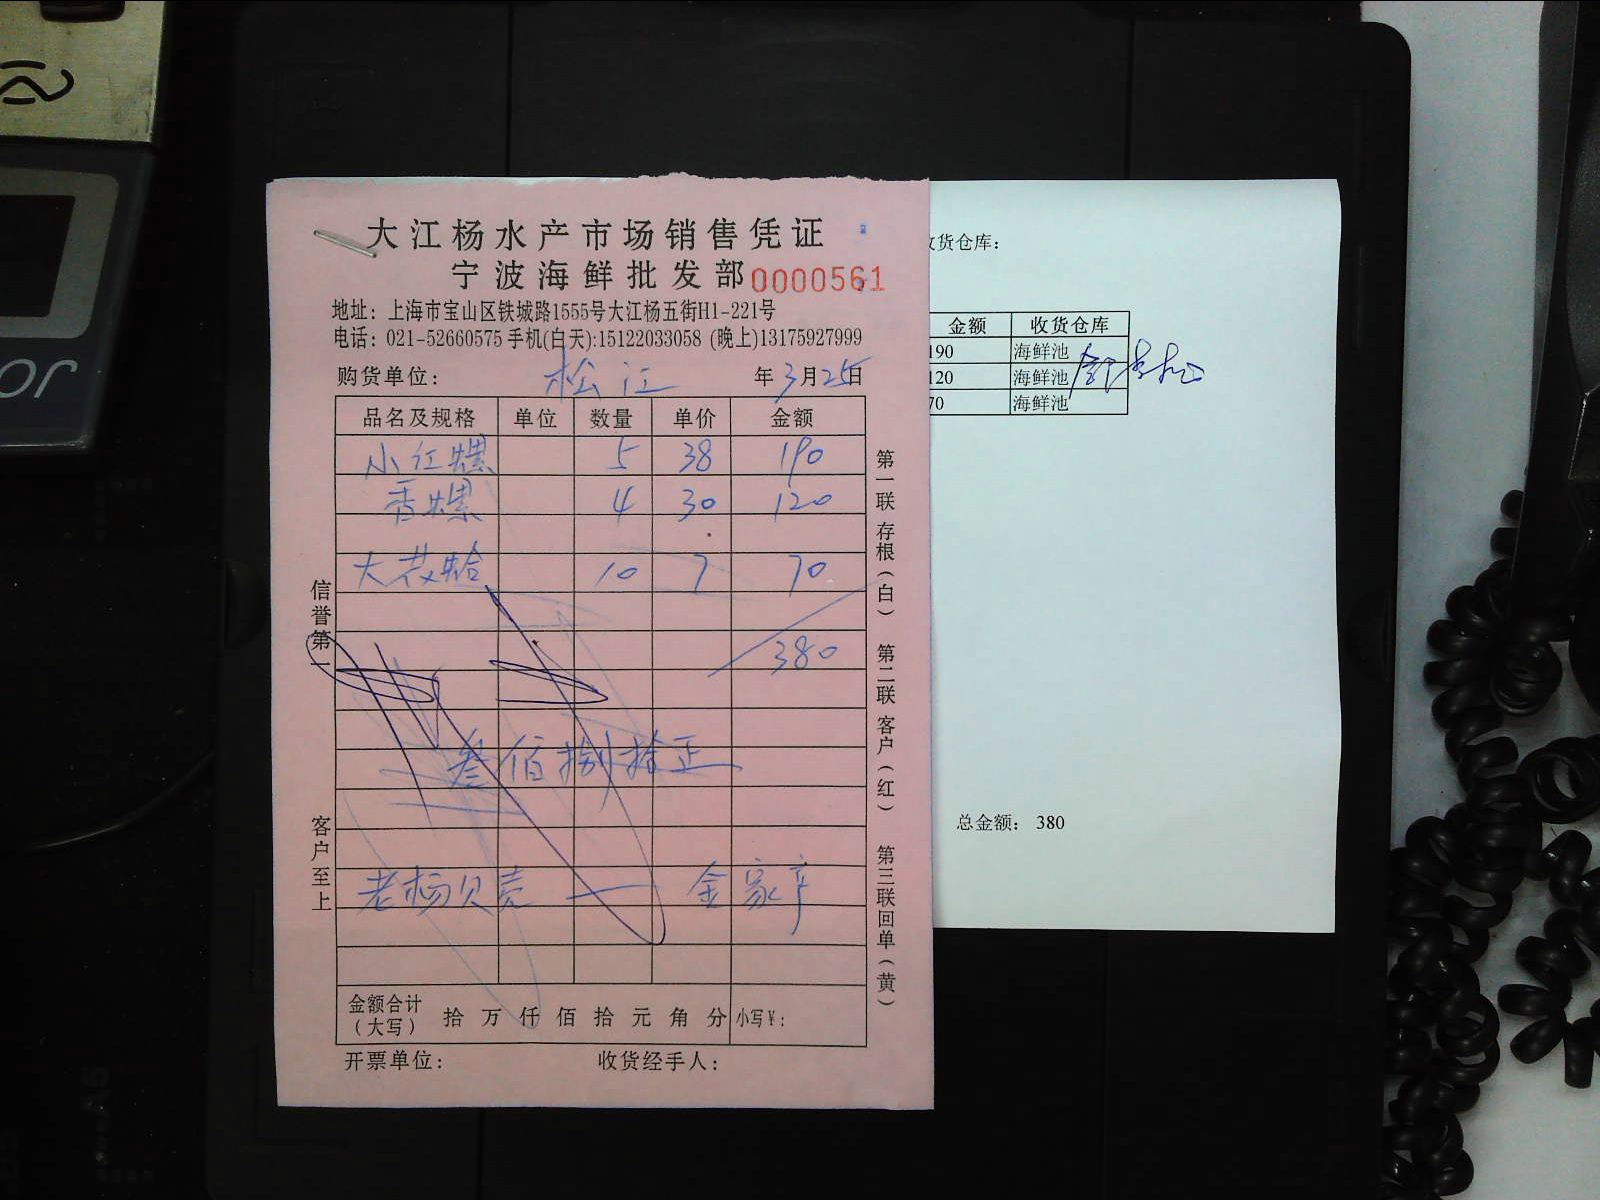 大江杨水产市场销售凭证
宁波海鲜批发部0000561
地址：上海市宝山区铁城路1555号大江杨五街H1-221号
电话：021-52660575 手机(白天):15122033058 (晚上)13175927999
购货单位：松江 年3月25日
品名及规格 单位 数量 单价 金额
小红螺 5 38 190
香螺 4 30 120
大花蛤 10 7 70
380
叁佰捌拾正
老杨贝壳 — 金家产
金额合计（大写） 拾 万 仟 佰 拾 元 角 分 小写￥:
开票单位： 收货经手人：
信誉第一
客户至上
第一联存根（白）
第二联客户（红）
第三联回单（黄）
货仓库：
金额 收货仓库
190 海鲜池
120 海鲜池
70 海鲜池
总金额： 380